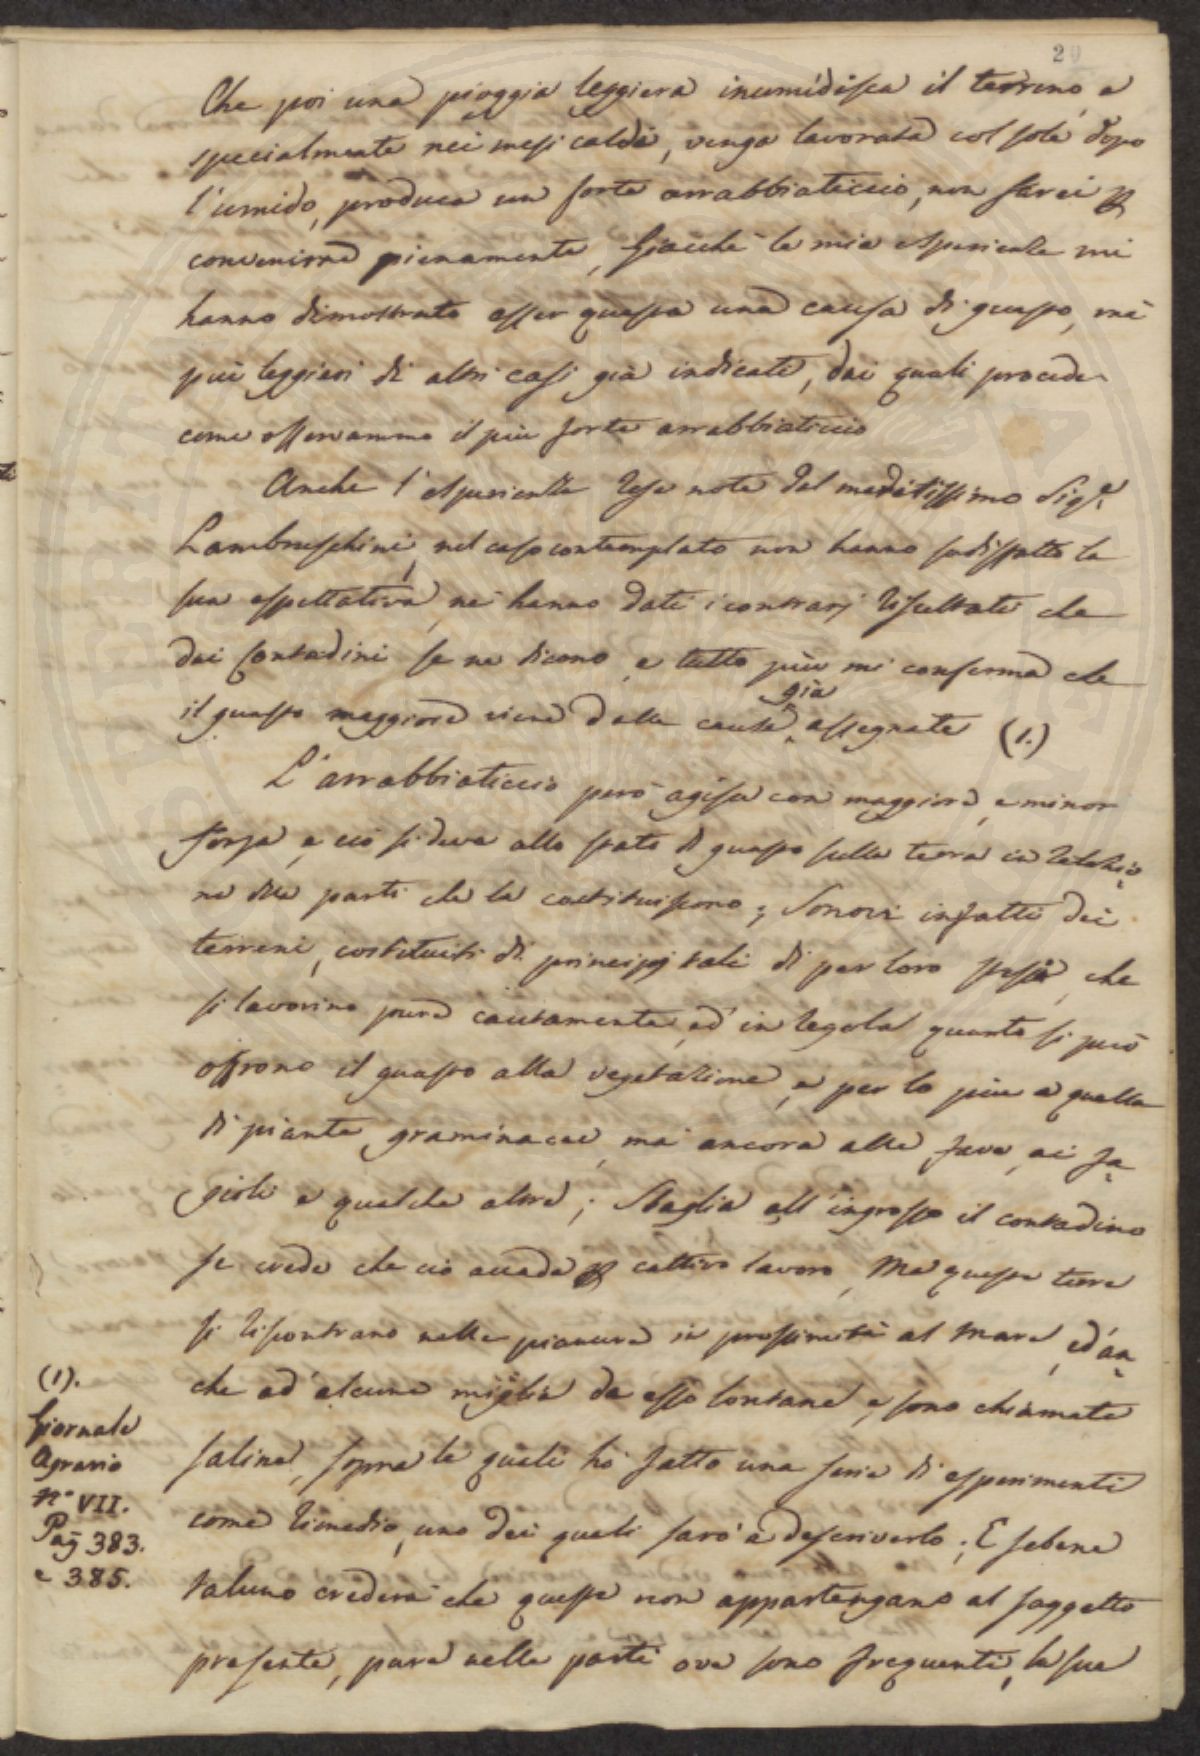 20
Che poi una pioggia leggiera inumidisca il terreno, e
specialmente nei mesi caldi, venga lavorata col sole dopo
l'umido, produca un forte arrabbiaticcio, non sarei p
convenirne pienamente, Giacchè le mie esperienze mi
hanno dimostrato esser questa una causa di guasto, mà
più leggieri di altri casi già indicati, dai quali procede
come osservammo il più forte arrabbiaticcio
Anche l'esperienze rese note dal meritissimo Sigr.
Lambruschini, nel caso contemplato non hanno sodisfatto la
sua espettativa, nè hanno dati i contrarj risultati che
dai Contadini se ne dicono, e tutto più mi conferma che
il guasto maggiore viene dalle cause già assegnate (1.)
L'arrabbiaticcio però agisce con maggiore, e minor
forza, e ciò si deve allo stato di guasto sulla terra in relazio-
ne delle parti che la costituiscono; Sonovi infatti dei
terreni, costituiti di principj tali di per loro stessi, che
si lavorino pure cautamente, ed in regola quanto si può
offrono il guasto alla vegetazione, e per lo più a quella
di piante graminacee, ma ancora alle fave, ai fa-
gioli e qualche altra; Sbaglia all'ingrosso il contadino
se crede che ciò accada p cattivo lavoro, Ma queste terre
si riscontrano nelle pianure in prossimità al mare, ed an-
che ad alcune miglia da esso lontane, e sono chiamate
saline, sopra le quali hò fatto una serie di esperimenti
come rimedio, uno dei quali sarò a descriverlo; E sebene
taluno crederà che queste non appartengano al soggetto
presente, pure nelle parti ove sono frequenti, la sua
(1).
Giornale
Agrario
n° VII.
Pag 383.
e 385.